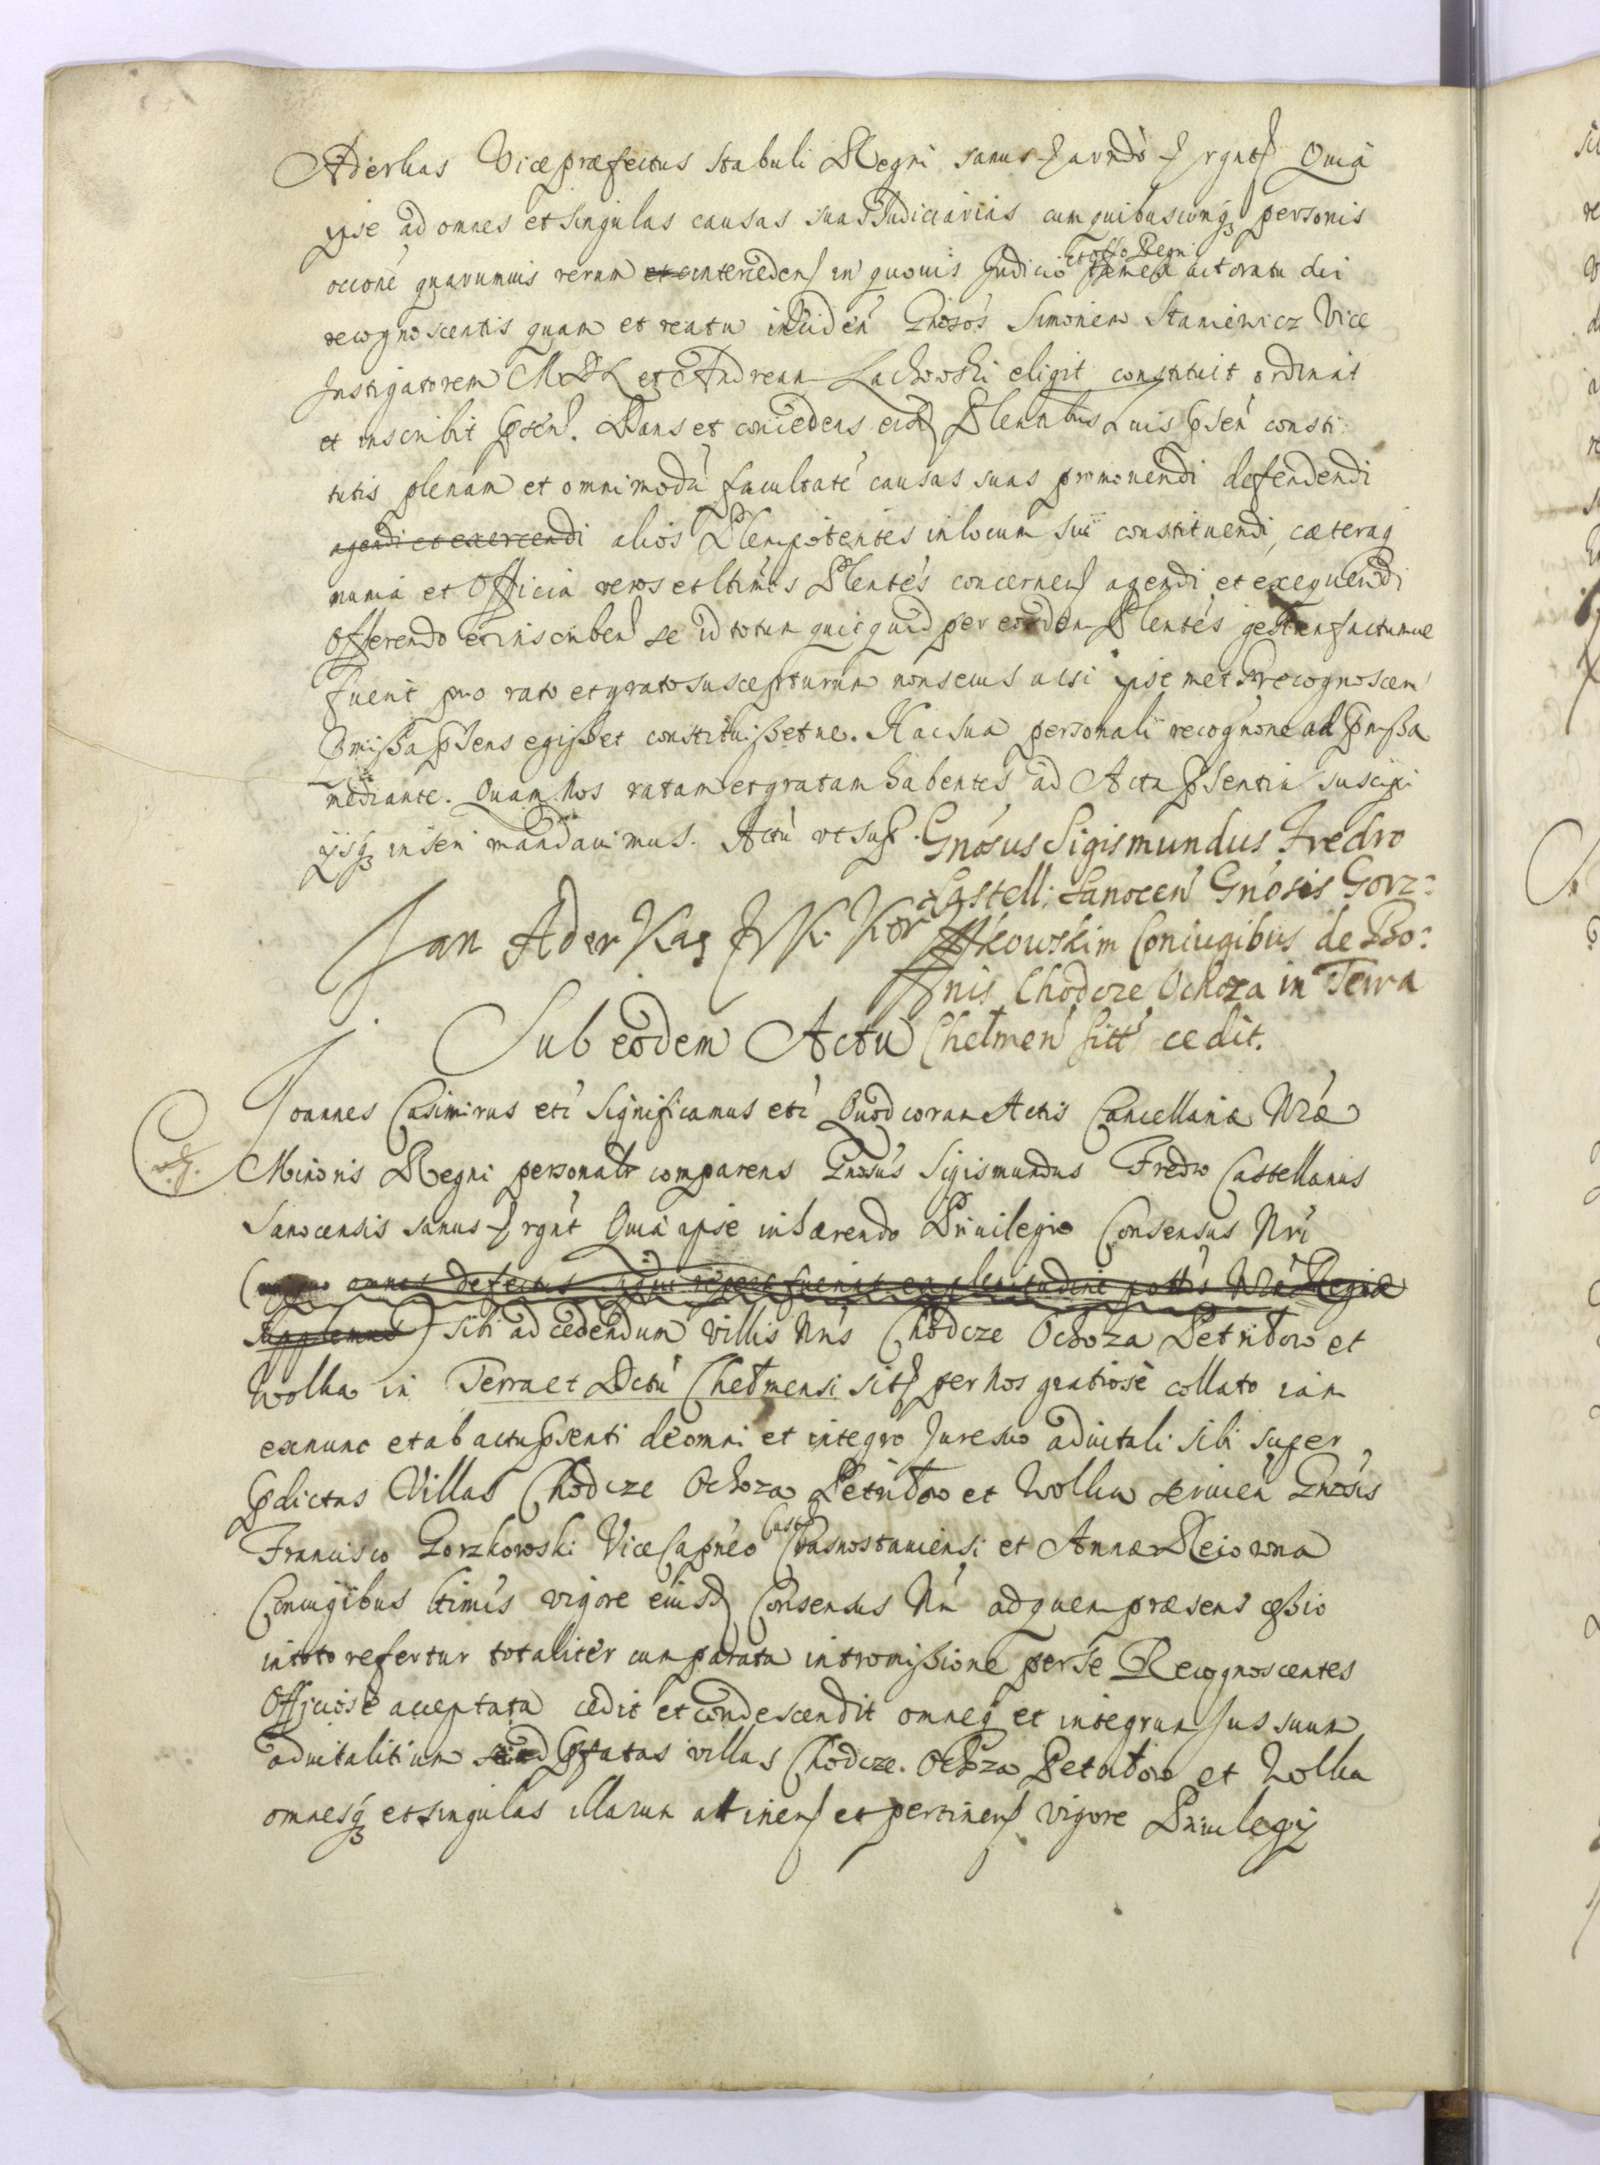 Aderkas Vicepræfectus Stabuli Regni sanus
ipse ad omnes et singulas causas suas Judiciarias cum quibuscunq personis
occone quarumvis rerum et intercedens in quovis Judicio et Offo Regni tamen actoratu dei
recognoscentis quam et reatu inciden Gnosos Simonem Staniewicz Vice
Instigatorem MDL et Andream Lachowski eligit constituit ordinat
et inscribit psen. Dans et concedens eisd Plentibus suis psen consti
tutis plenam et omnimoda facultate causas suas promovendi defendendi
agendi et exercendi alios Plenipotentes in locum sui constituendi, cæteraq
munia et Officia veros et ltimos Plentes concernen agendi et exequendi
Offerendo et inscriben se id totum quicquid per eosdem Plentes gestum factumve
fuerit pro rato et grato suscepturum non secus ac si ipsemet recognoscen
pmissa psens egisset constituissetve. Hac sua personali recognone ad pmissa
mediante. Quam Nos ratam et gratam habentes ad Acta psentia suscipi
ijsq inseri mandavimus. Actu ut sup.
Jan Aderkas
Gnosus Sigismundus Fredro
Castell: Sanocen Gnosis Gorz:
kowskim Coniugibus de Bo:
nis Chodcze Ochoza in Terra
Chełmen sitt cedit.
Sub eodem Actu
Joannes Casimirus etc Significamus etc Quod coram Actis Cancellariæ Nræ
Minoris Regni personalr comparens Gnosus Sigismundus Fredro Castellanus
Sanocensis sanus rgnt Quia ipse inhærendo Privilegio Consensus Nri
omnes defectus siqui reperti fuerint ex plenitudine pottis Nræ Regiæ
supplemus) sibi ad cedendum villis Nris Chodcze Ochoza Petriłow et
Wolka in Terra et Dctu Chełmensi sit per Nos gratiose collato iam
exnunc et ab actu psenti de omni et integro Jure suo advitali sibi super
pdictas Villas Chodcze Ochoza Petriłow et Wolka servien Gnosis
Francisco Gorzkowski ViceCapneo Cast Crasnostaviensi et Annæ Reiowna
Coniugibus ltimis vigore eiusd Consensus Nri ad quem præsens cessio
in toto refertur totaliter cum parata intromissione per se Recognoscentes
Officiose acceptata cedit et condescendit omneq et integrum Jus suum
advitalitium ad pfatas villas Chodcze. Ochoza Petriłow et Wolka
omnesq et singulas illarum attinen et pertinen vigore Privilegij